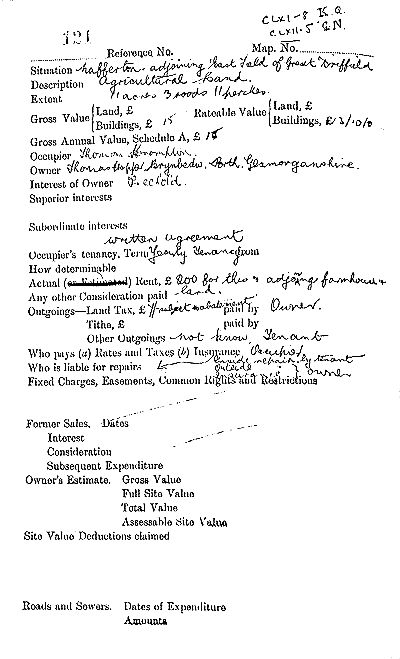 CLXI-8 K.Q.
CLXII.5 S.N.
121
Reference No. Map. No.
Situation Nafferton adjoining East Field of Great Driffield
Description Agricultural Land.
Extent 11 acres 3 roods 11 perches.
Gross Value {Land, £ Rateable Value {Land, £
{Buildings, £ 15 {Buildings, £12/10/0
Gross Annual Value, Schedule A, £ 15
Occupier Thomas
Owner Thomas Porth. Glamorganshire.
Interest of Owner Freehold.
Superior interests
Subordinate interests
written agreement
Occupier's tenancy, Term Yearly Tenancy from
How determinable
Actual (or Estimated) Rent, £ 200 for this & adjoing farmhouse &
Any other Consideration paid land.
Outgoings—Land Tax, £ subject to abatement paid by Owner.
Tithe, £ paid by
Other Outgoings not know, Tenant
Who pays (a) Rates and Taxes (b) Insurance Occupier
Who is liable for repairs inside repairs by tenant
outside } owner
Fixed Charges, Easements, Common Rights and Restrictions
Former Sales. Dates
Interest
Consideration
Subsequent Expenditure
Owner's Estimate. Gross Value
Full Site Value
Total Value
Assessable Site Value
Site Value Deductions claimed
Roads and Sewers. Dates of Expenditure
Amounts